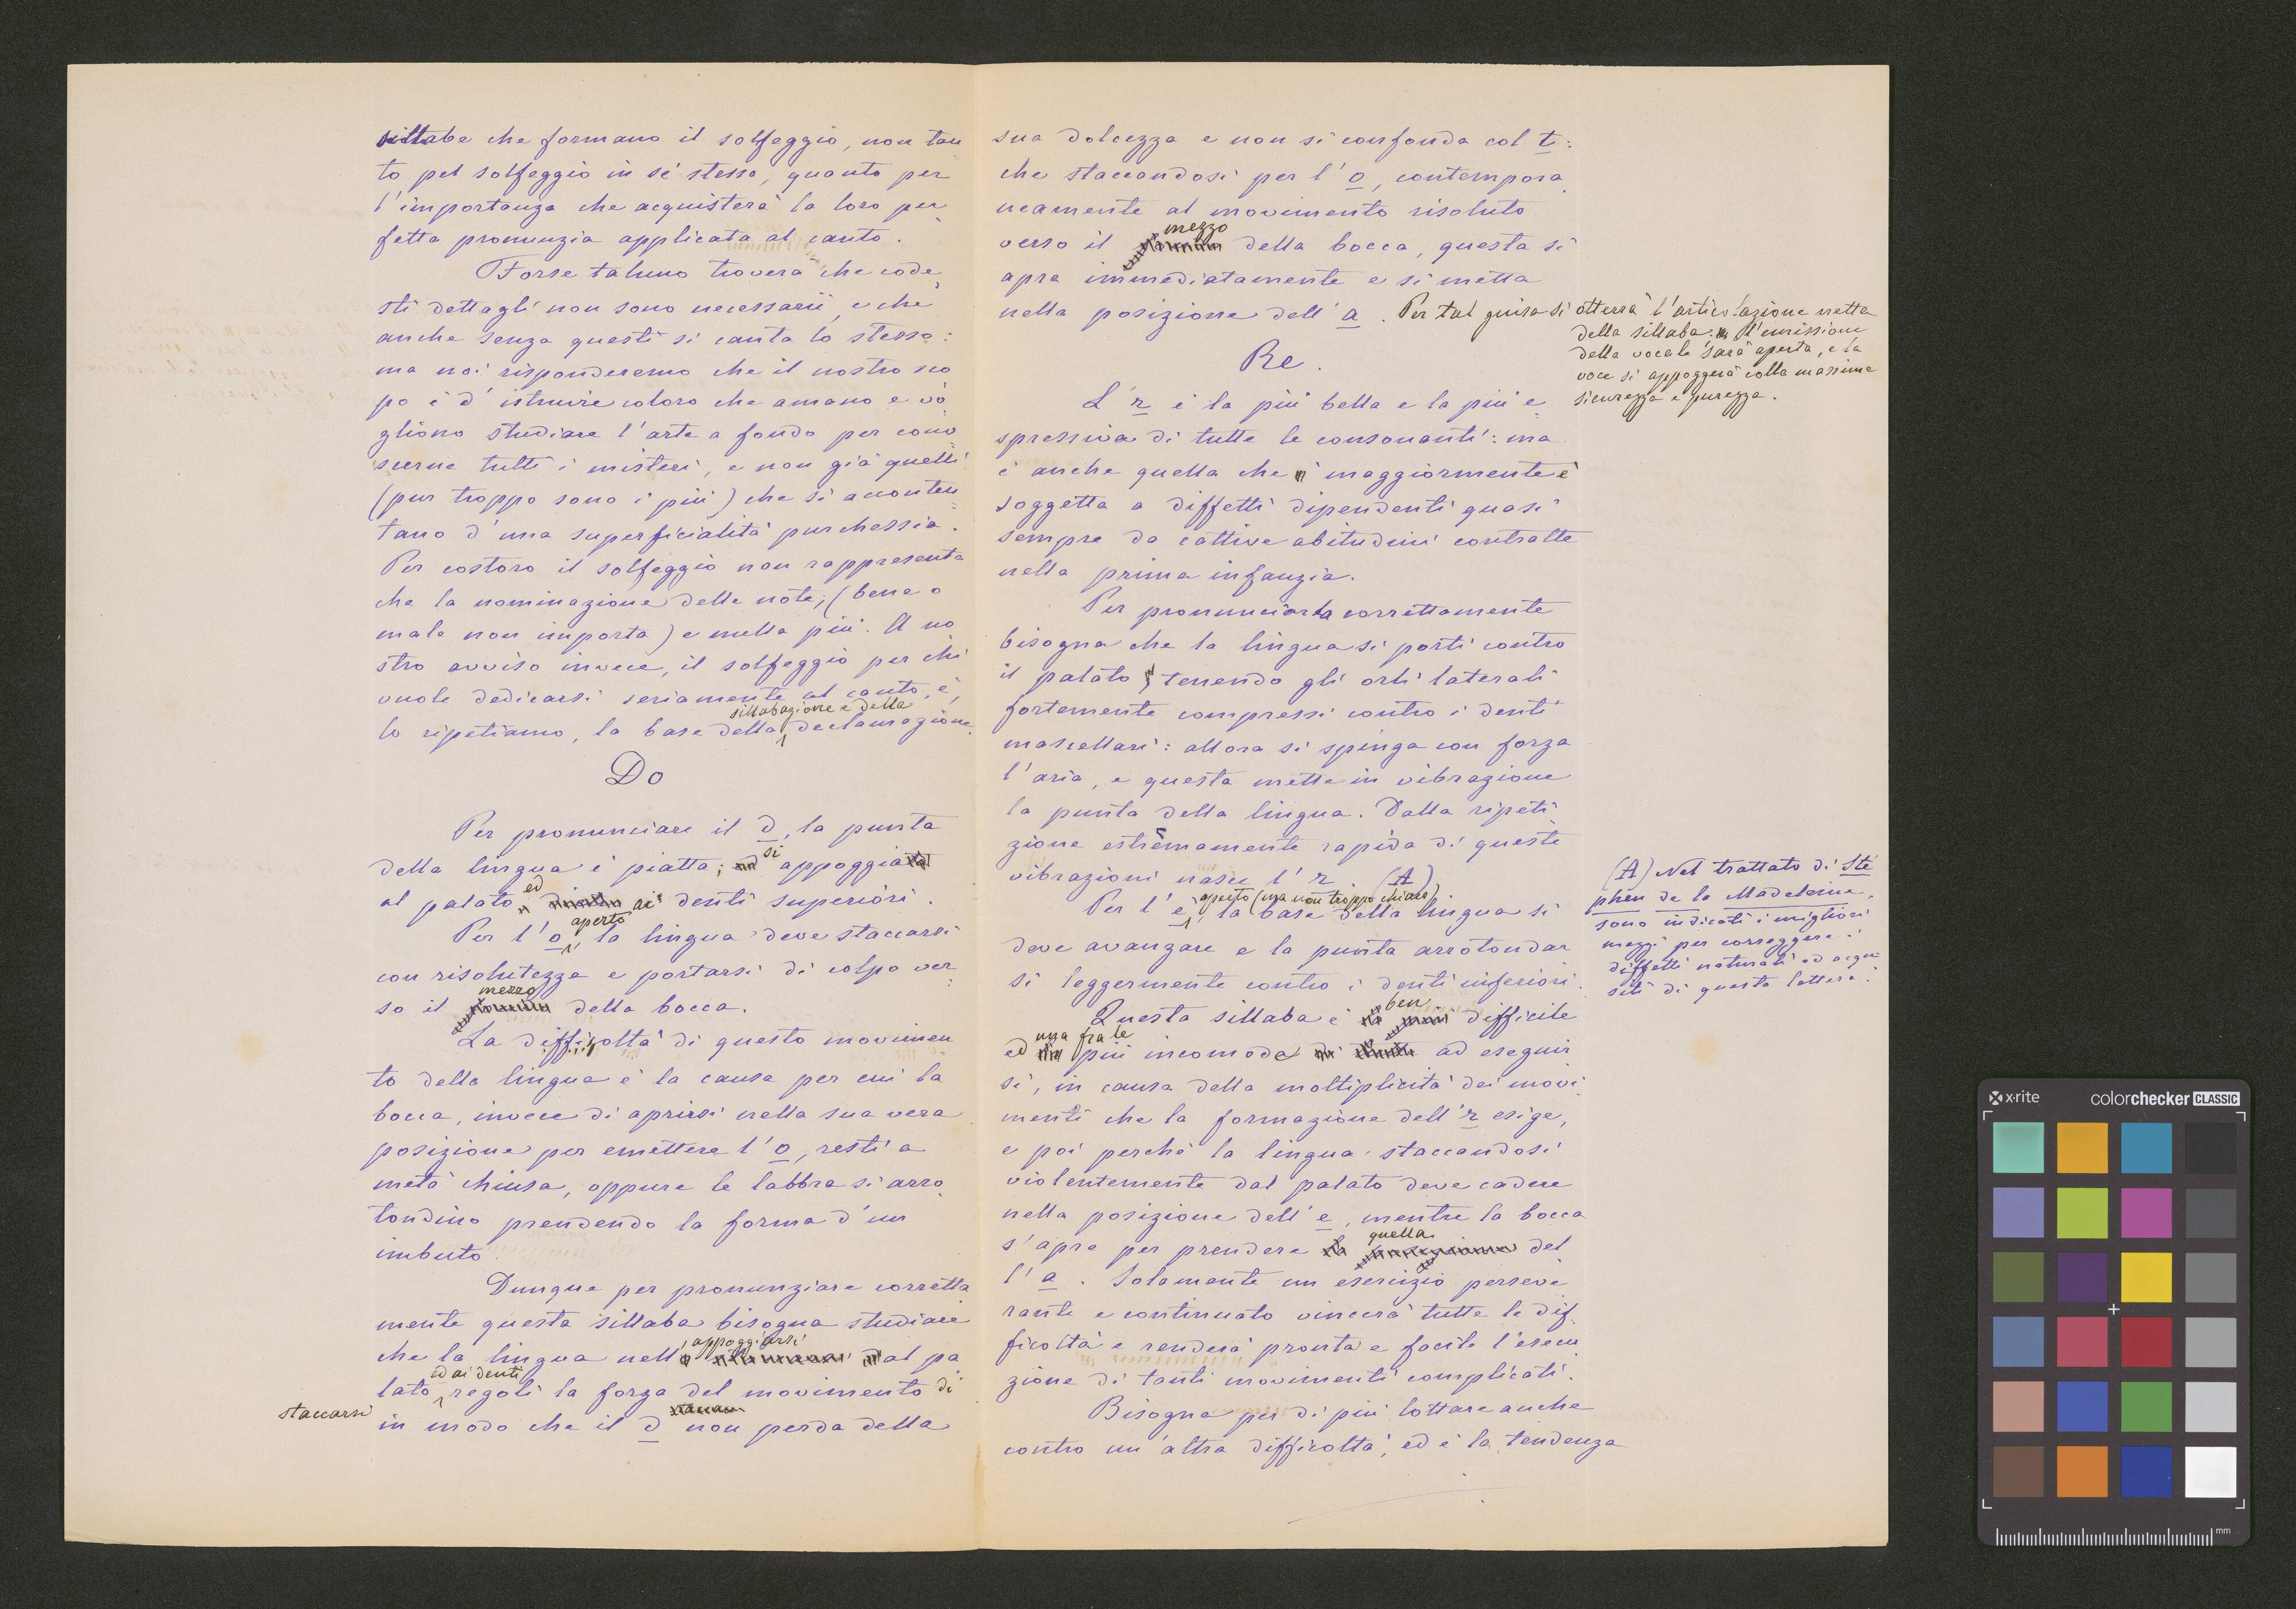 sillabe che formano il solfeggio, non tan
to pel solfeggio in sè stesso, quanto per
l'importanza che acquisterà la loro per
fetta pronunzia applicata al canto.
Forse taluno troverà che code
sti dettagli non sono necessarii, e che
anche senza questi si canta lo stesso:
ma noi risponderemo che il nostro sco
po è d'istruire coloro che amano e vo
gliono studiare l'arte a fondo per cono
scerne tutti i misteri, e non già quelli
(pur troppo sono i più) che si acconten
tano d'una superficialità purchessia.
Per costoro il solfeggio non rappresenta
che la nominazione delle note, (bene o
male non importa) e nulla più. A no
stro avviso invece, il solfeggio per chi
vuole dedicarsi seriamente al canto, è,
sillabazione e della
lo ripetiamo, la base della declamazione.
Do
Per pronunciare il d, la punta
della lingua è piatta; si appoggia
al palato ed ai denti superiori.
aperto
Per l'o, la lingua deve staccarsi
con risolutezza e portarsi di colpo ver
mezzo
so il della bocca.
La difficoltà di questo movimen
to della lingua è la causa per cui la
bocca, invece di aprirsi nella sua vera
posizione per emettere l'o, resti a
metà chiusa, oppure le labbra si arro
tondino prendendo la forma d'un
imbuto.
Dunque per pronunziare corretta
mente questa sillaba bisogna studiare
appoggiarsi
che la lingua nell' al pa
ed ai denti
lato regoli la forza del movimento di
staccarsi
in modo che il d non perda della
sua dolcezza e non si confonda col t:
che staccandosi per l'o, contempora
neamente al movimento risoluto
mezzo
verso il della bocca, questa si
apra immediatamente e si metta
nella posizione dell'a. Per tal guisa si otterrà l'articolazione netta
della sillaba: l'emissione
della vocale sarà aperta, e la
voce si appoggerà colla massima
sicurezza e purezza.
Re.
L'r è la più bella e la più e
spressiva di tutte le consonanti: ma
è anche quella che maggiormente è
soggetta a diffetti dipendenti quasi
sempre da cattive abitudini contratte
nella prima infanzia.
Per pronunciarla correttamente
bisogna che la lingua si porti contro
il palato, tenendo gli orli laterali
fortemente compressi contro i denti
mascellari: allora si spinga con forza
l'aria, e questa mette in vibrazione
la punta della lingua. Dalla ripeti
zione estremamente rapida di queste
vibrazioni nasce l'r. (A)
(A) Nel trattato di Sté
phen de la Madeleine,
sono indicati i migliori
mezzi per correggere i
diffetti naturali ed acqui
siti di questa lettera.
aperto (ma non troppo chiaro)
Per l'e, la base della lingua si
deve avanzare e la punta arrotondar
si leggermente contro i denti inferiori.
ben
Questa sillaba è difficile
una fra le
ed più incomode ad eseguir
si, in causa della moltiplicità dei movi
menti che la formazione dell'r esige,
e poi perchè la lingua staccandosi
violentemente dal palato deve cadere
nella posizione dell'e, mentre la bocca
quella
s'apre per prendere del
l'a. Solamente un esercizio perseve
rante e continuato vincerà tutte le dif
ficoltà e renderà pronta e facile l'esecu
zione di tanti movimenti complicati.
Bisogna per di più lottare anche
contro un'altra difficoltà, ed è la tendenza
x-rite
colorchecker CLASSIC
mm